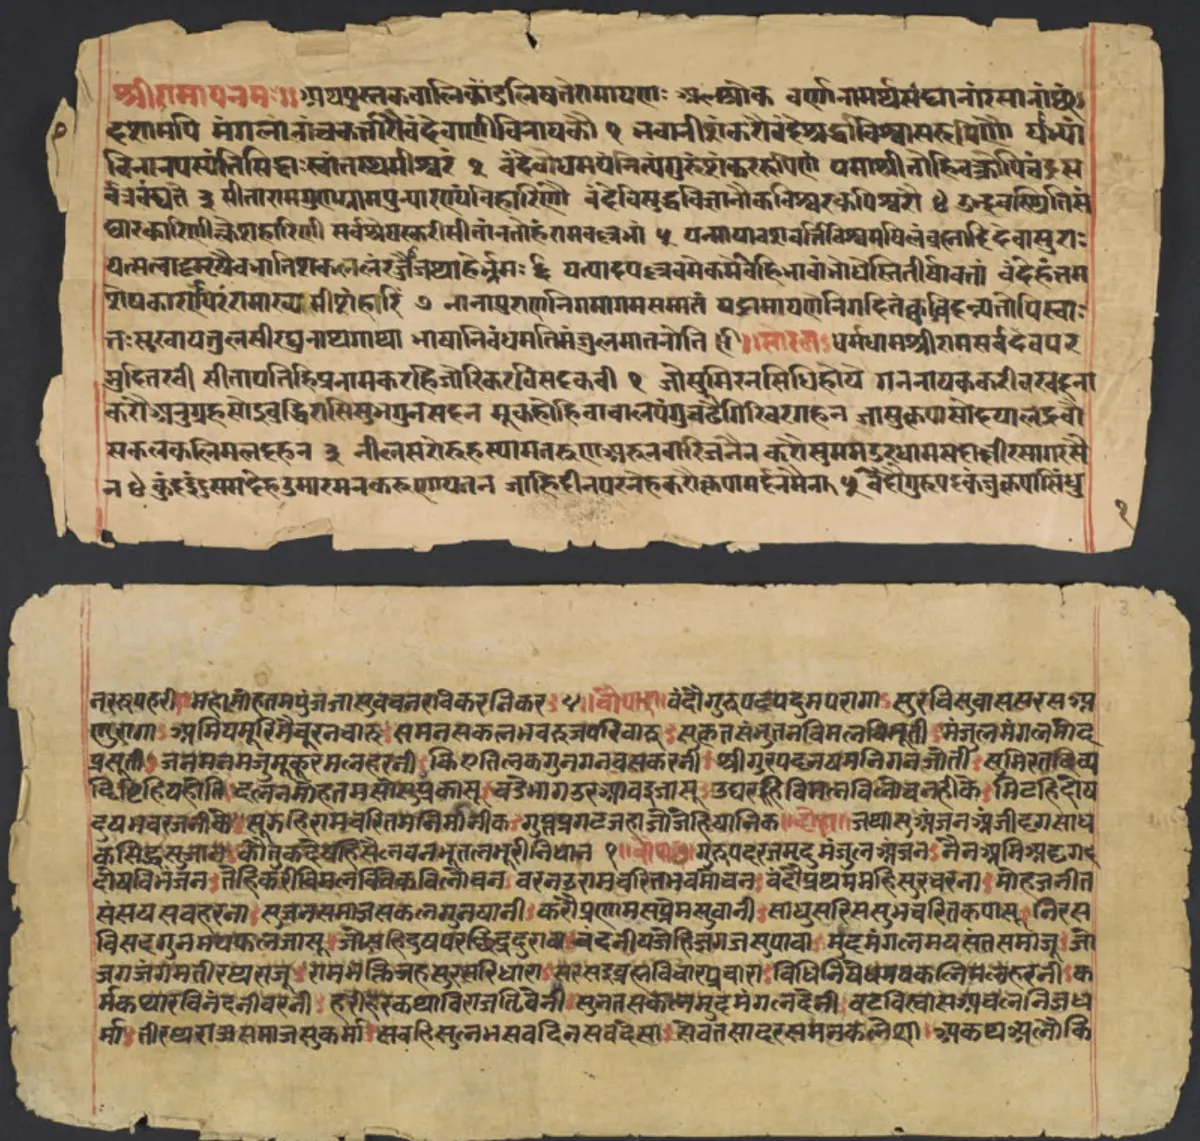 श्रीरामायनमः॥ अथपुस्तकबालिकांडलिषतेरामायण॰ श्लोक वर्णानामर्थसंघानांरसानांछं
दशामपि मंगलानांचकर्त्तारौवंदेवाणीविनायकौ १ भवानीशंकरौवंदेश्रद्धाविश्वासरूपिणौ याभ्यां
विनानपस्यंतिसिद्धाःस्वांतस्थमीश्वरं २ वंदेबोधमयंनित्यंगुरुंशंकररूपिणं यमाश्रीतोहिवक्रोपिचंद्रस
र्वत्रवंद्यते ३ सीतारामगुणग्रामपुन्यारण्यविहारिणौ वंदेविसुद्धविज्ञानौकविश्वरकपिश्वरौ ४ उद्भवस्थितिसं
घारकारिणीक्लेशहारिणी सर्वश्रेयस्करीसीतांनतोहंरामवल्लभां ५ यन्मायावशवर्तिविश्वमषिलंब्रह्मादिदेवासुराः
यत्सत्वादमृषैवभातिशकलंरज्जौजथाहेर्भ्रमः ६ यत्पादप्लवमेकमेवहिभावांभोधेस्तितीर्षावतां वंदेहंतम
शेषकारणपरंरामाख्यमीशंहरिं ७ नानापुराणनिगमागमसमातं यद्रामायणेनिगदितंक्वचिदन्यतोपिस्वाः
तःसुखायतुलसीरघुनाथगाथा भाषानिबंधमतिमंजुलमातनोति ॥सोरठा॰ धर्मधामश्रीरामसर्वदेवपर
मुदितरवी सीतापतिहिप्रनामकरहिजोरिकरविसदकवी १ जोसुमिरनसिधिहोय गननायककरीवरवदना
करौअनुग्रहसोइबुद्धिरासिसुभगुनसदन मूकहोहिबाचालपंगुचढैगिरिवरगहन जासुकृपासोदयालद्रवौ
सकलकलिमलदहन ३ नीलसरोरुहस्यामतरुणअरुनवारिजनैन करौसुममउरधामसदाक्षीरसागरसै
न ४ कुंदइंदुसमदेहउमारमनकरुणायतन जाहिदीनपरनेहकरौकृपामर्दनमैना ५ बंदौगुरुपदकंजकृपासिंधु
१
नररूपहरी महामोहतमपुंजजासुबचनरविकरनिकर ५॥चौपाइ॥बंदौगुरुपदपदुमपरागा सुरुचिसुबाससरसअ
णुरागा अमियमूरिमैचूरनचारु समनसकलभवरुजपरिवारु सकृतसंभुतनविमलविभूती मंजुलमंगलमोद
प्रसूती जनमनमंजुमुकुरमलहरनी किएतिलकगुनगनबसकरनी श्रीगुरपदनषमनिगनजोती सुमिरतदिव्य
द्रिष्टिहियहोति दलनमोहतमसोसुप्रकासू बडेभागउरआवइजासू उघरहिविमलविलोचनहीके मिटहिदोष
दुषभवरजनीके सूझहिरामचरितमनिमानिक गुप्तप्रगटजहाजोजेहिषानिक॥दोहा॥जथासुअंजनअंजीदृगसाध
कसिद्धसुजान कौतुकदेषहिसैलबनभूतलभूरीनिधान १॥चौपाइ॥गुरुपदरजमृदुमंजुलअंजन नैनअमिअदृगद्
दोषविभंजन तेहिकरीविमलविवेकविलोचन बरनउरामचरितभवमोचन बंदौप्रथममहिसुरचरना मोहजनीत
संसयसबहरना सुजनसमाजसकलगुनषानी करौप्रणामसप्रेमसुबानी साधुसरिससुभचरितकपासू निरस
विसदगुनमयफलजासू जोसहिदुषपरछिद्रदुरावा बंदनीयजेहिजगजसुपावा मुदमंगलमयसंतसमाजू जो
जगजंगमतीरथराजू रामभक्तिजहसुरसरिधारा सरसइब्रह्मविचारप्रचारा विधिनिषेधमयकलिमलहरनी क
र्मकथारविनंदनीबरनी हरीहरकथाविराजतिबेनी सुनतसकलमुदमंगलदेनी बटविस्वासअचलनिजध
र्मा तीरथराजसमाजसुकर्मा सबहिसुलभसबदिनसबदेसा सेवतसादरसमनकलेशा अकथअलौकि